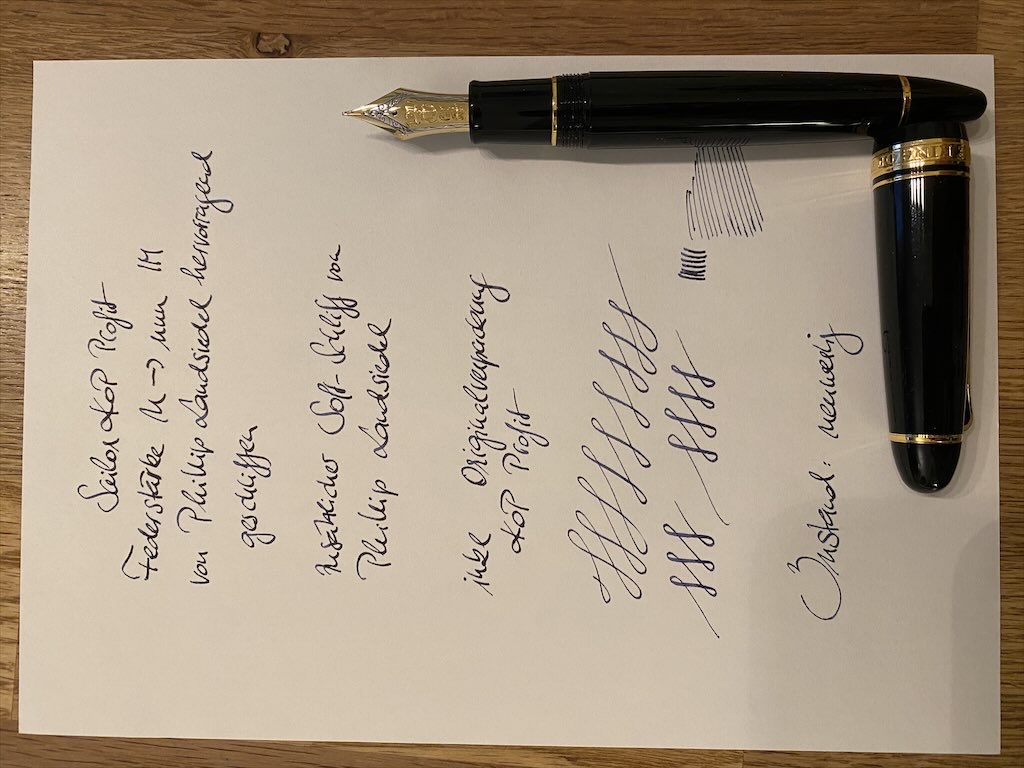 Sailor KoP Profit
Federstärke M → nun IM
von Phillip Landsiedel hervorragend
geschliffen
zusätzlicher Soft-Schliff von
Phillip Landsiedel
inkl Originalverpackung
KoP Profit
Zustand: neuwertig